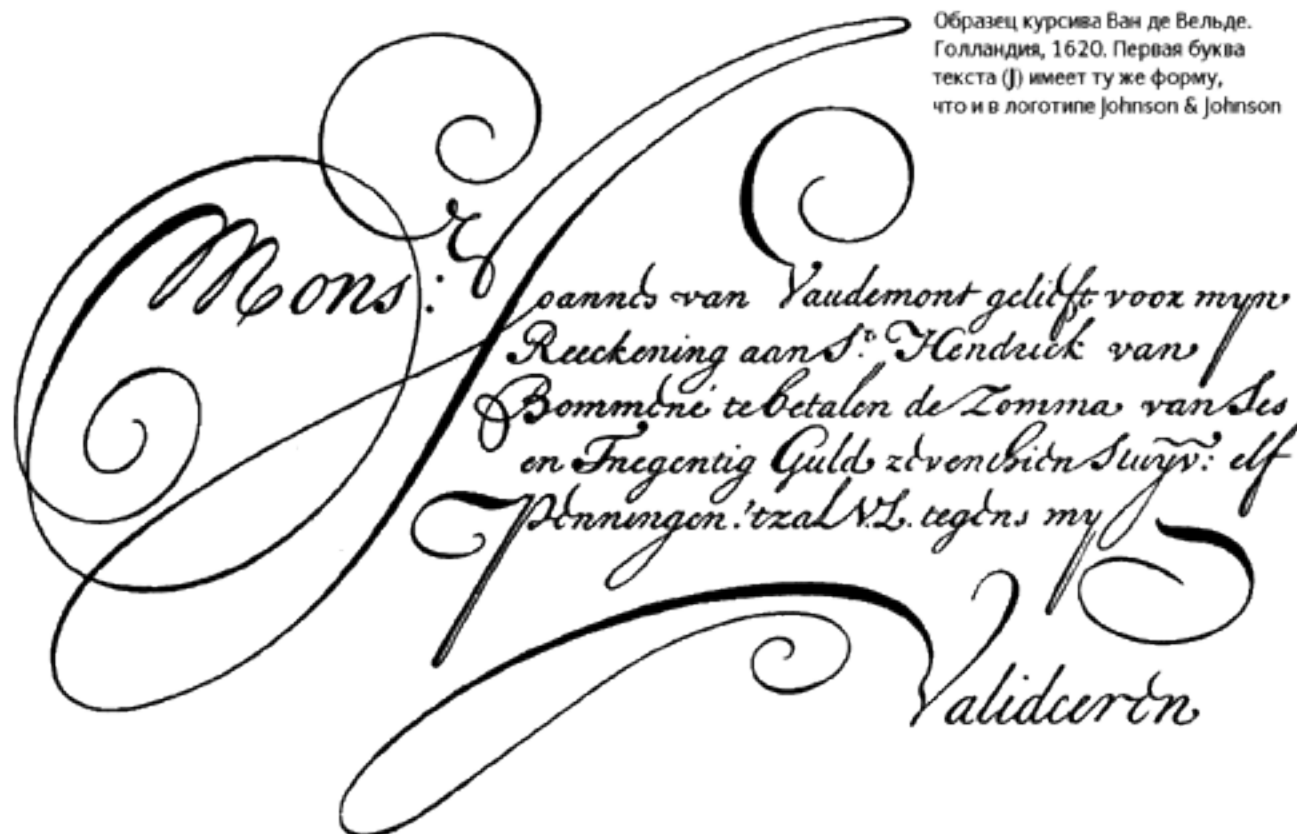 Образец курсива Ван де Вельде.
Голландия, 1620. Первая буква
текста (J) имеет ту же форму,
что и в логотипе Johnson & Johnson
Mons:r Joannes van Vaudemont gelieft voor myn
Reeckening aan Sr. Hendrick van
Bommene te betalen de Zomma van Ses
en Tnegentig Guld zeventhien Stuyv: elf
Penningen. 'tzal V.L. tegens my
Valideeren